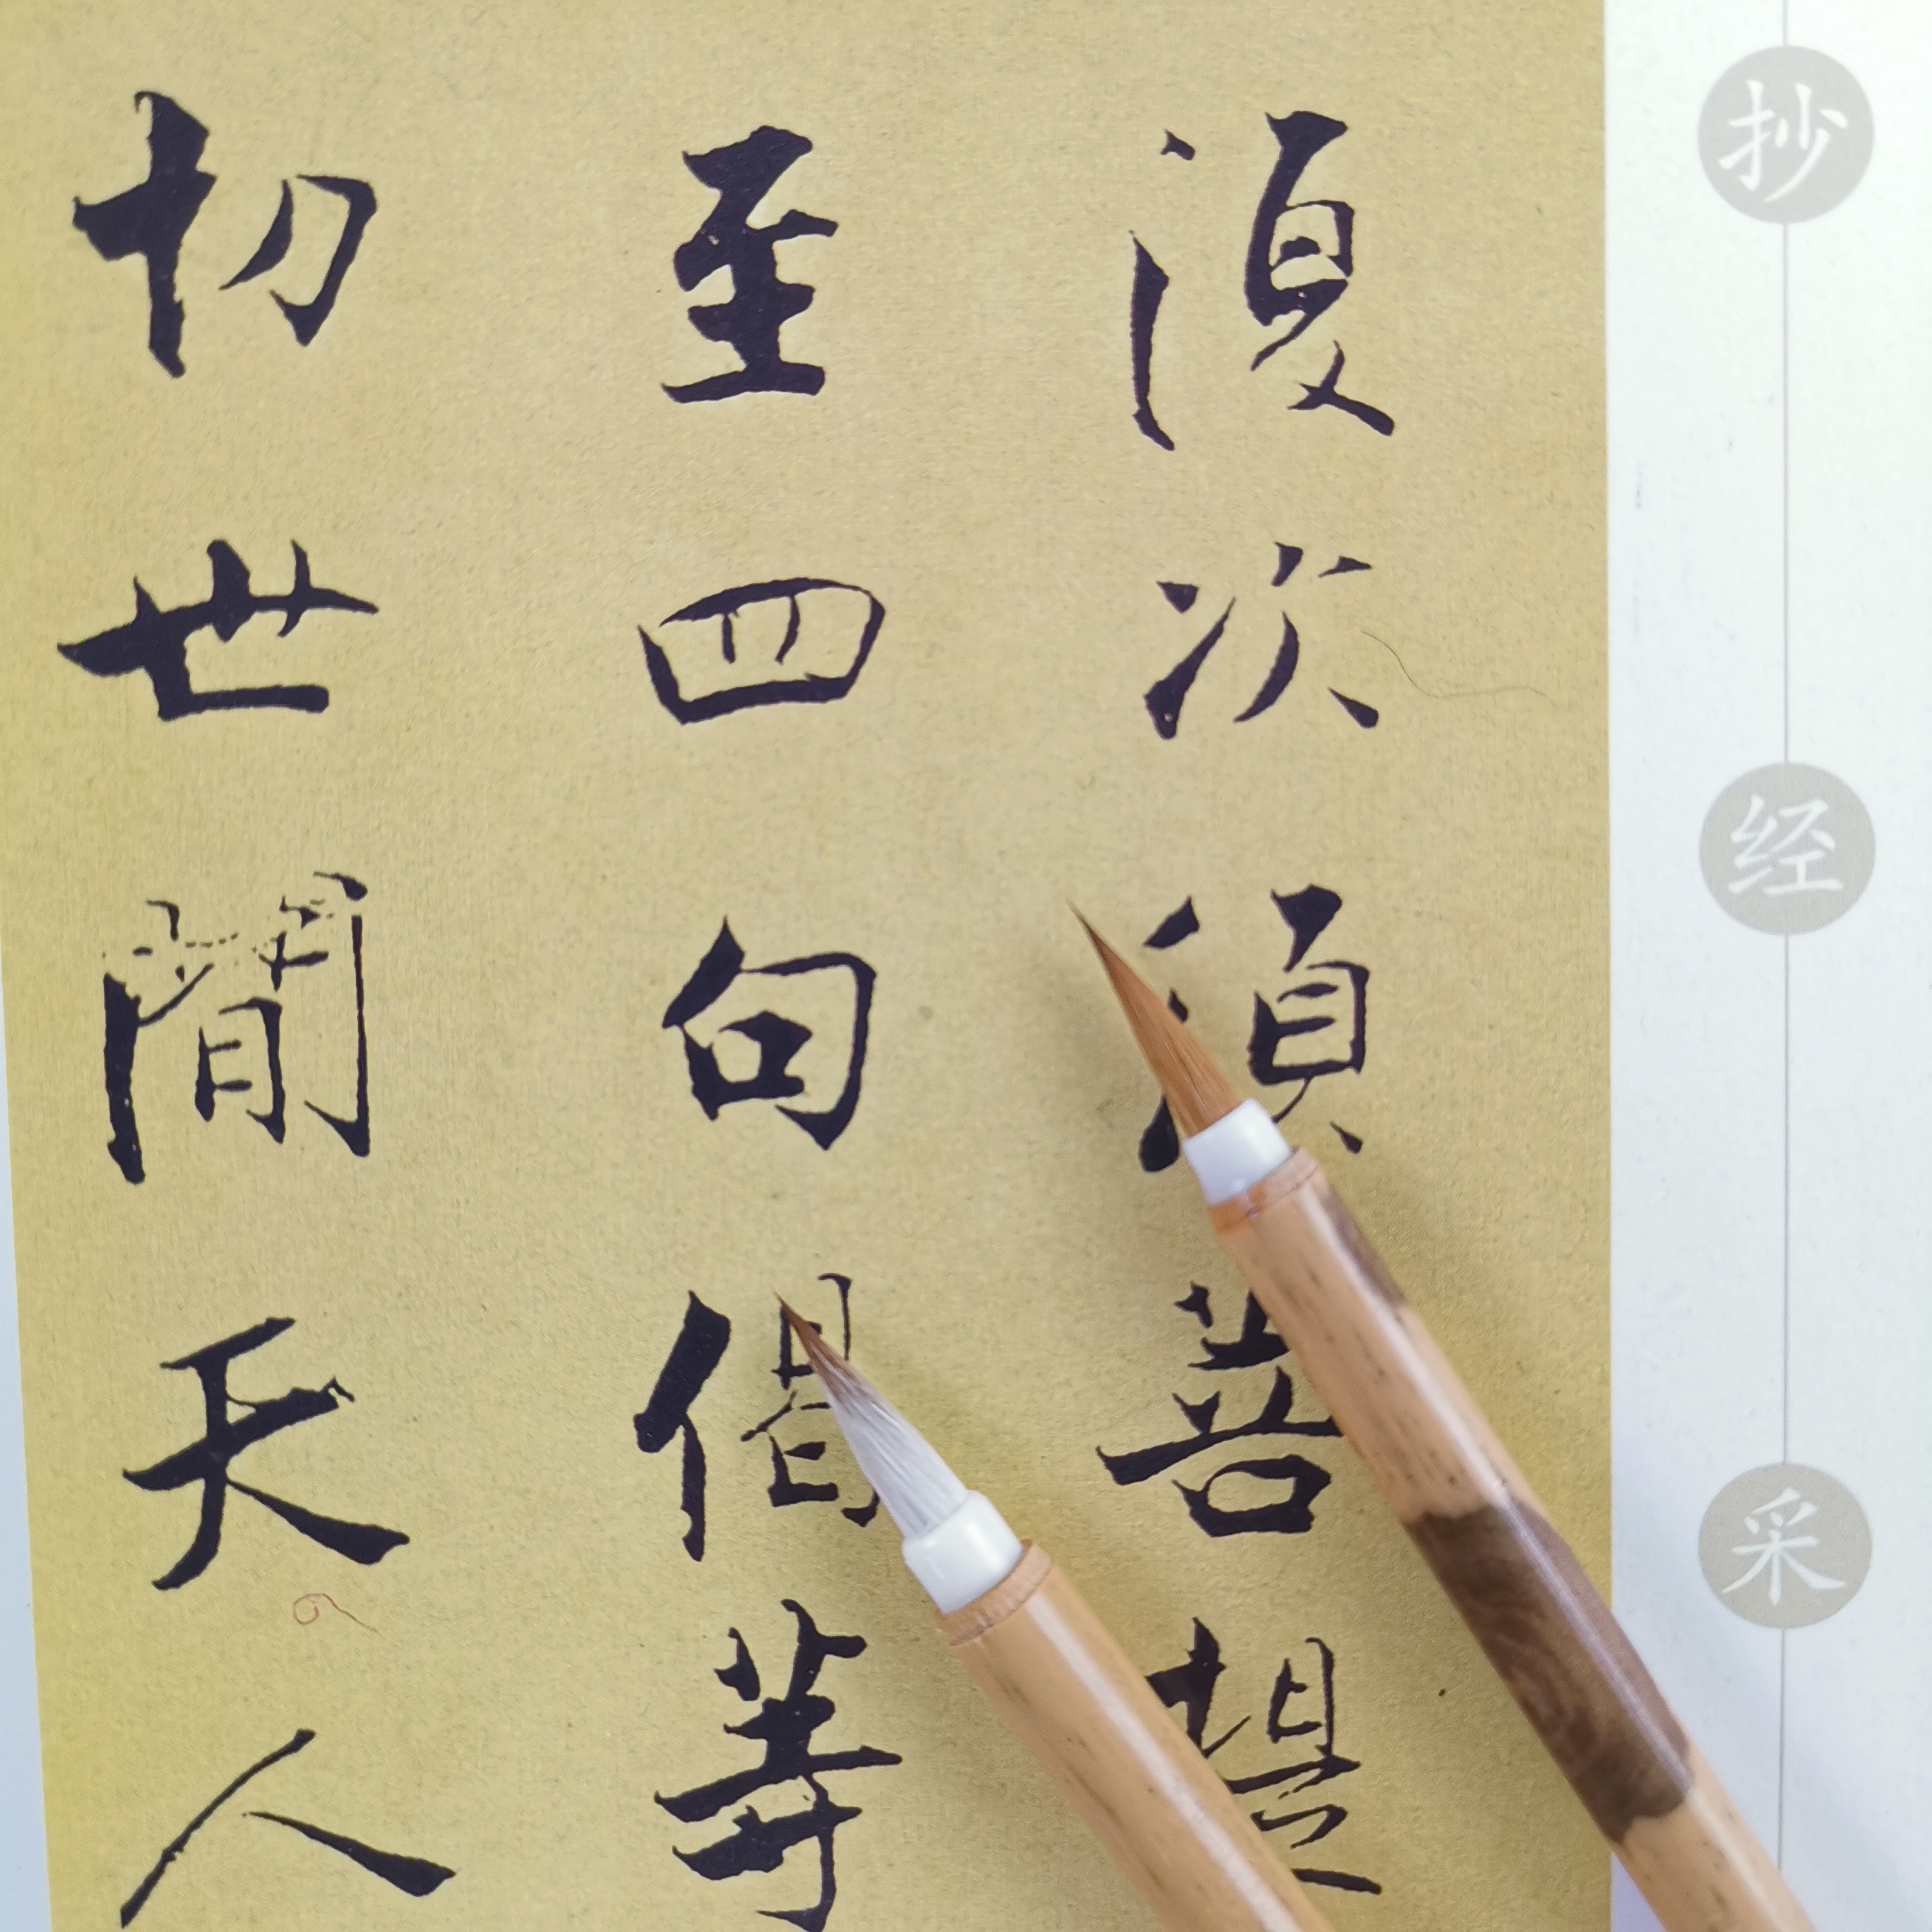 復次須菩提
至四句偈等
切世間天人
抄经采